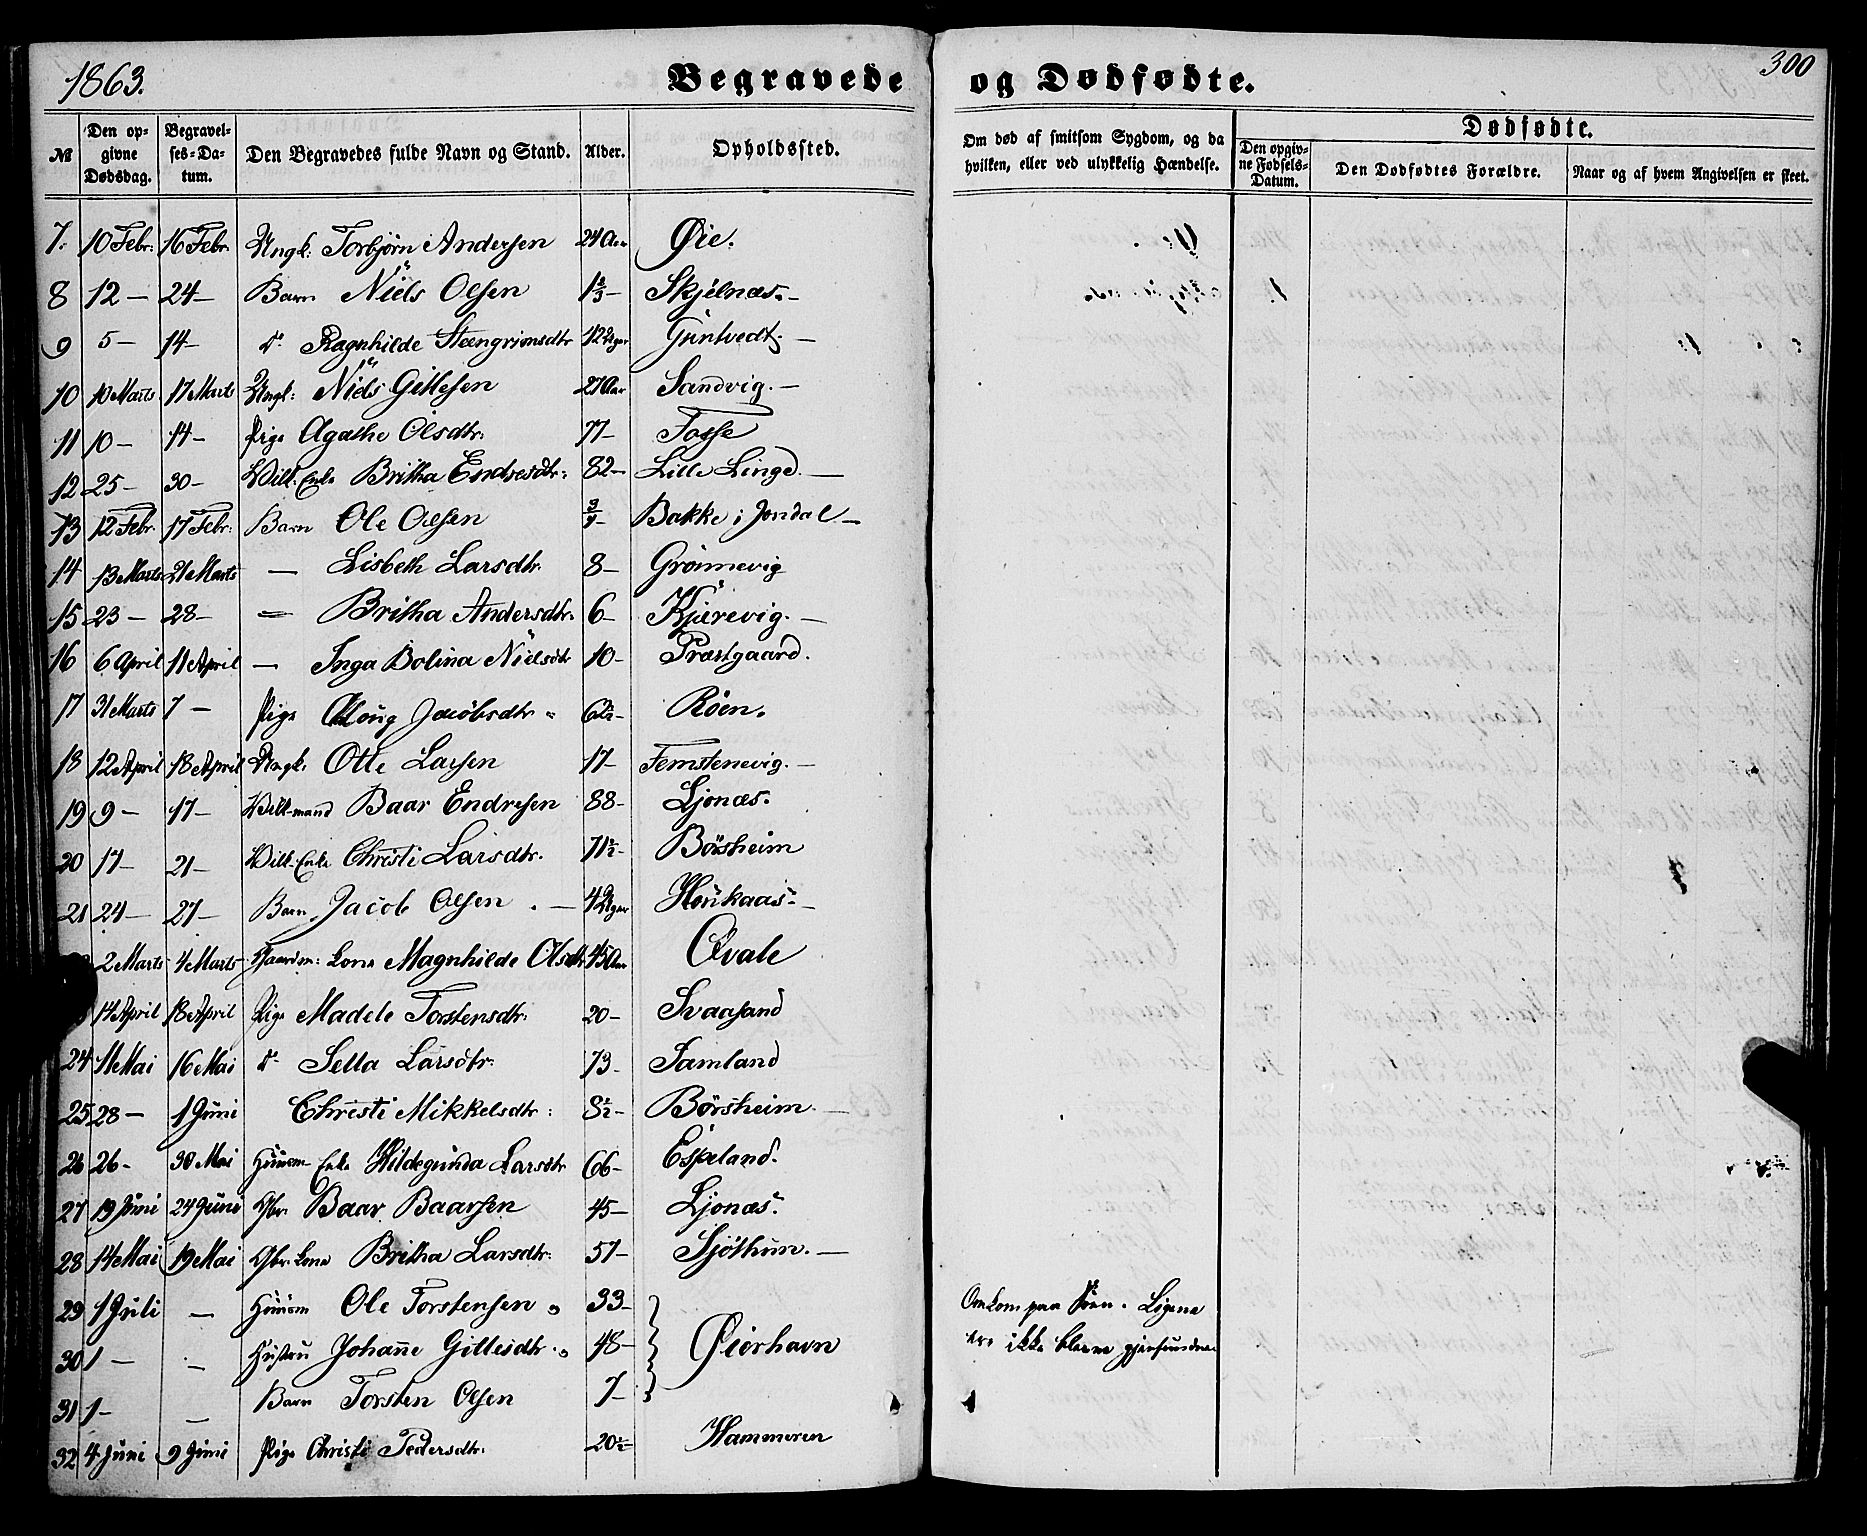 1863.
Begravede og Dødfødte.
300
№
Den opgivne Dødsdag.
Begravelses-Datum.
Den Begravedes fulde Navn og Stand.
Alder.
Opholdssted.
Om død af smitsom Sygdom, og da hvilken, eller ved ulykkelig Hændelse.
Dødfødte.
Den opgivne Fødsels-Datum.
Den Dødfødtes Forældre.
Naar og af hvem Angivelsen er skeet.
7. 10 Febr: 16 Febr. Ungk: Torbjørn Andersen 24 Aar Øie.
8 12 — 24 — Barn Niels Olsen 1 2/3 — Skjelnæs. —
9 5 — 14 — d° Ragnhilde Steengrimsdtr 12 Uger Guntvedt. —
10 10 Marts 17 Marts Ungk: Niels Gitlesen 27 Aar Sandvig. —
11 10 — 14 — Pige Agathe Olsdtr. 77 — Fosse
12 25 — 30 — Vilk. Enke Britha Endresdtr: 82 — Lille Linge. —
13 12 Febr. 17 Febr: Barn Ole Olsen Bakke i Jondal —
14 13 Marts 21 Marts — Lisbeth Larsdtr. 8 — Grønnevig
15 23 — 28 — — Britha Andersdtr. 6 — Kjærevig. —
16 6 April 11 April — Inga Bolina Nielsdtr 10 — Præstgaard.
17 31 Marts 7 — Pige Jacobsdtr 62 1/2 — Røen.
18 12 April 18 April Ungk. Otte Larsen 17 — Femstenevig. —
19 9 — 17 — Vilk-mand Baar Endresen 88 — Ljonæs.
20 17 — 21 — Vilk-Enke Christi Larsdtr. 71 1/2 — Børsheim
21 24 — 27 — Barn Jacob Olsen. — 4 Uger Haukaas. —
2 Marts 4 Marts Gaardm: Kone Magnhilde Olsdtr 45 Aar Qvale
14 April 18 April Pige Madele Torstensdtr: 20 — Svaasand
24 11 Mai 16 Mai d° Sella Larsdtr. 73 — Samland
25 28 — 1 Juni Christi Mikkelsdtr: 8 1/2 — Børsheim. —
26 26 — 30 Mai Huusm Enke Hildegunda Larsdtr 66 — Espeland.
27 19 Juni 24 Juni Gbr. Baar Baarsen 45 — Ljonæs.
28 14 Mai 19 Mai Gbr. Kone Britha Larsdtr. 57 — Sjøthun. —
29 1 Juli — Huusm Ole Torstensen 33 — Omkom paa Søen. Ligene
30 1 — — Hustru Johanne Gitlesdtr. 48 — Øierhavn ere ikke blevne gjenfundne
31 1 — — Barn Torsten Olsen 7 —
32 4 Juni 9 Juni Pige Christi Pedersdtr. 20 1/2 — Hammeren